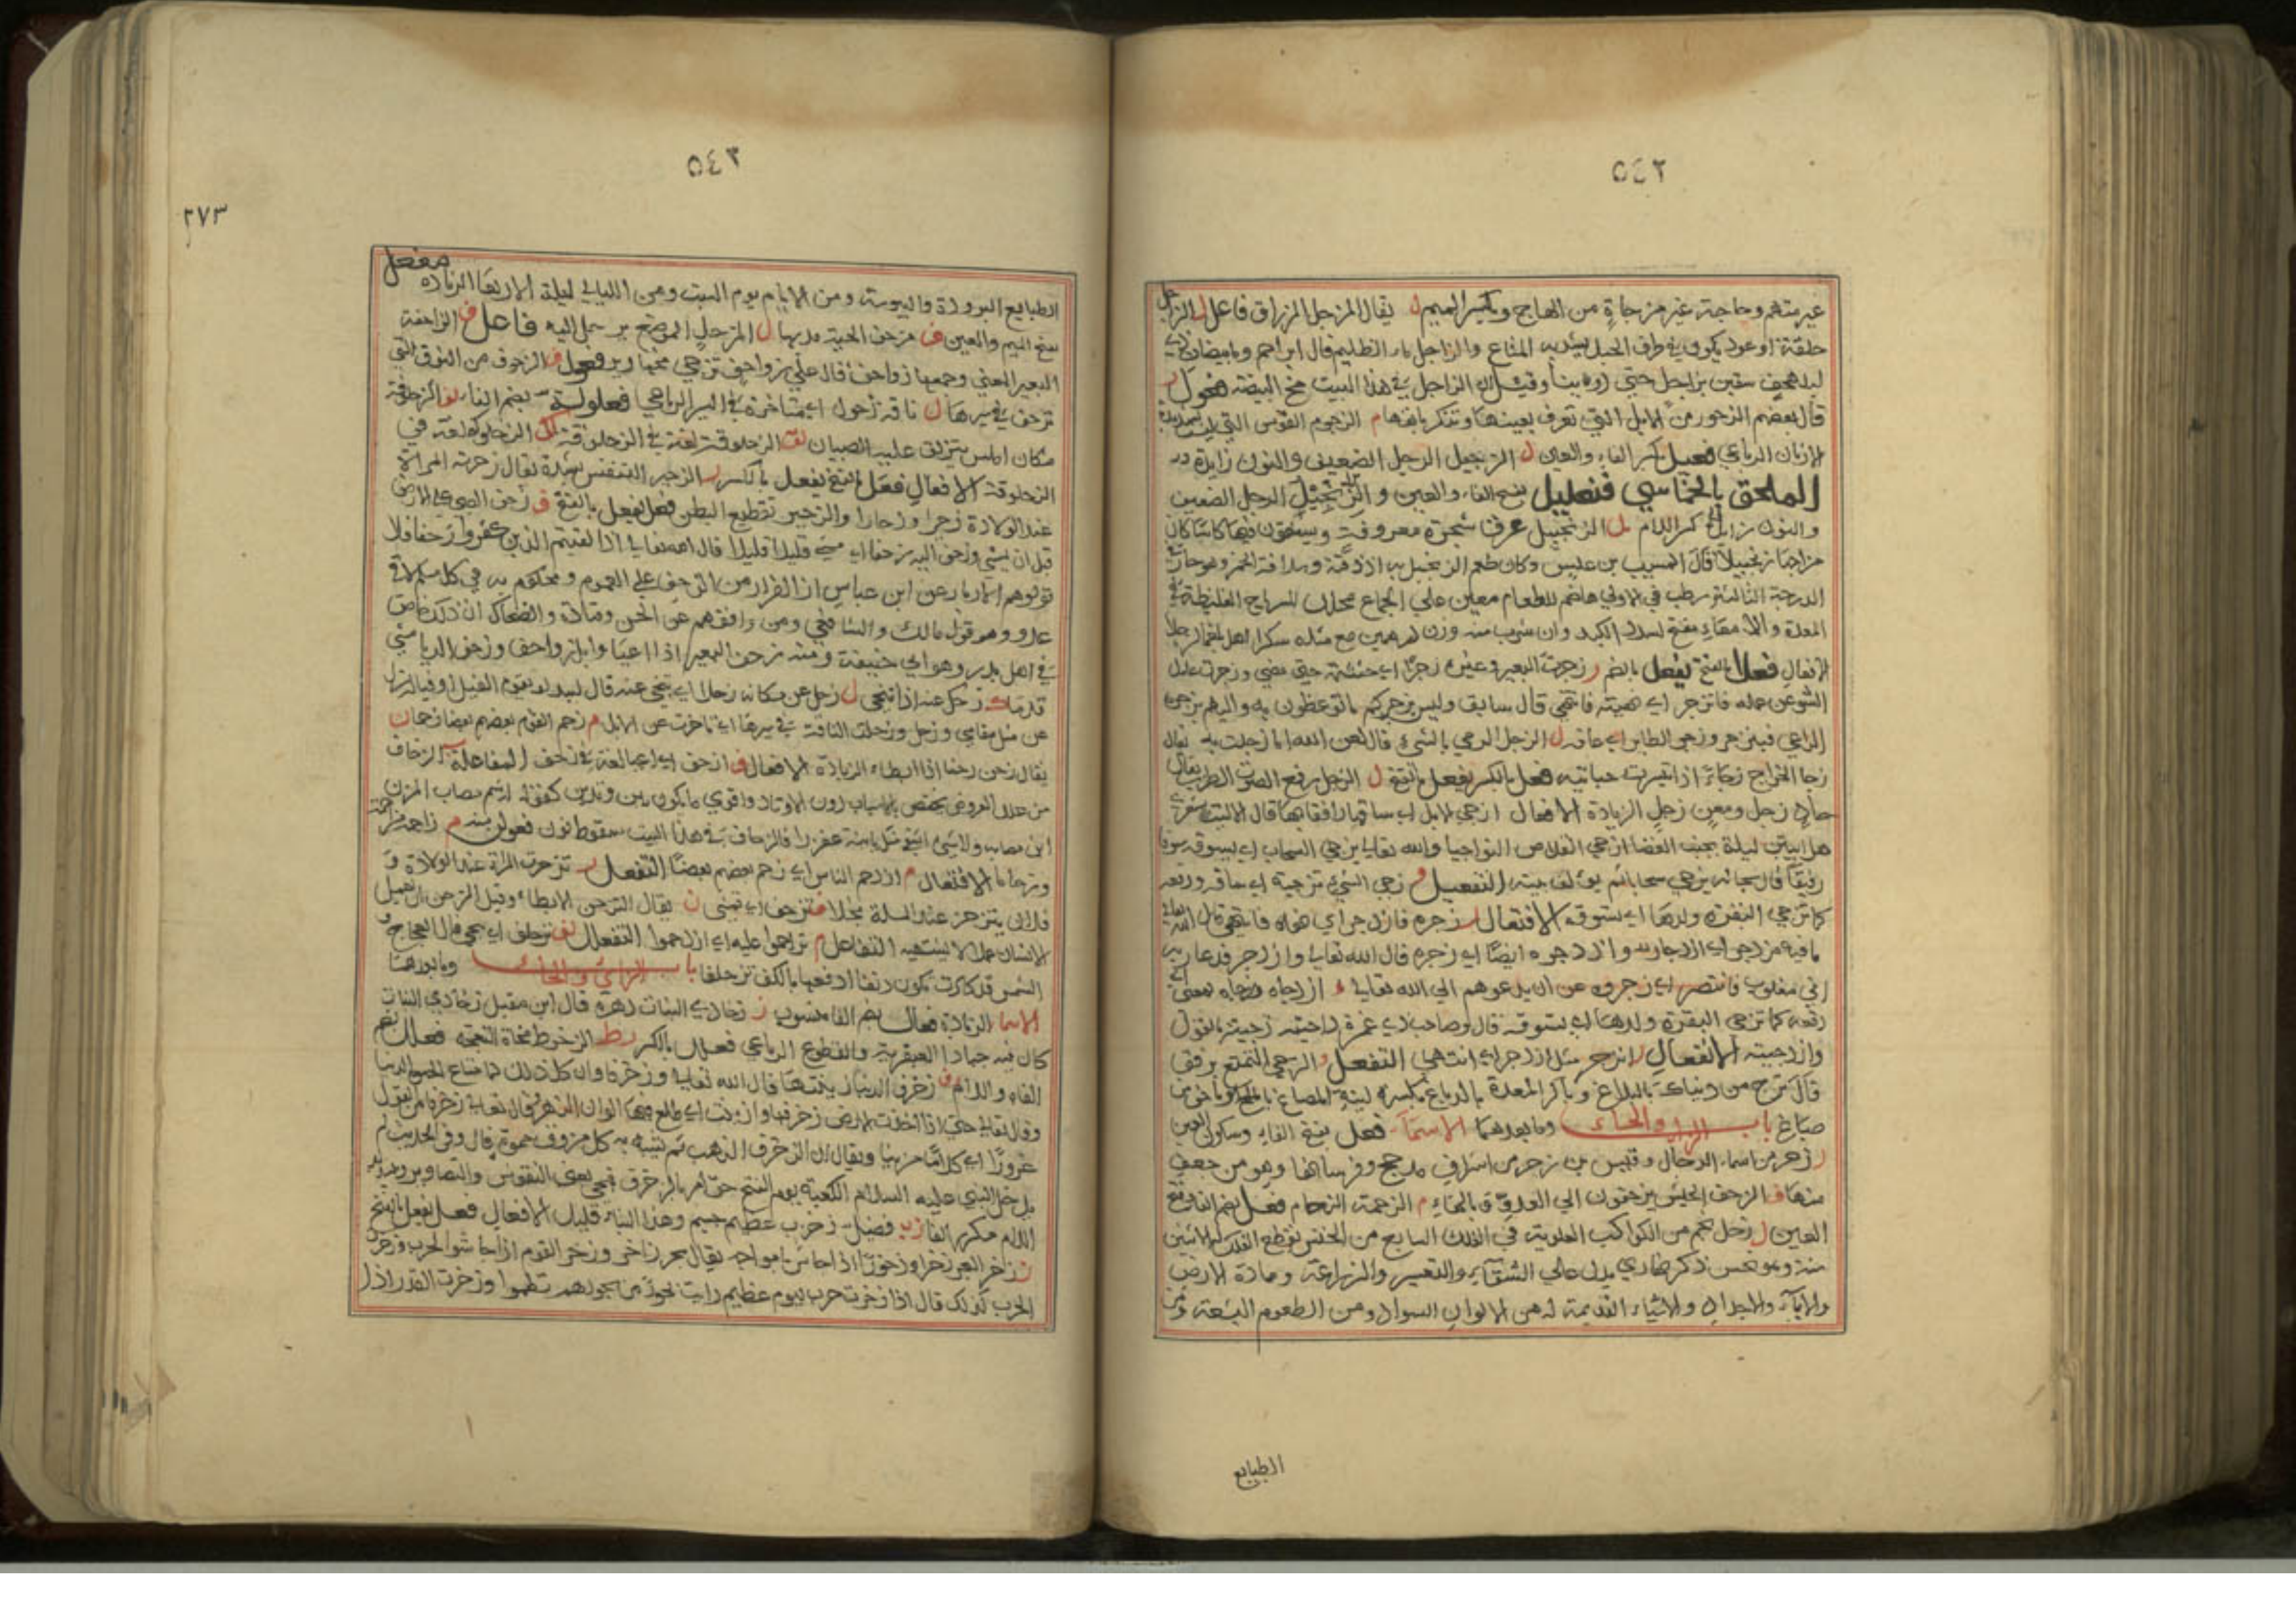 ٥٤٢
غير متهم وحاجة غير مزجاة من الحاج وبكسر الميم ل يقال المزجل المزراق فاعل ل الزاجل
حلقة او عود يكون في طرف الحبل يشد به المتاع والزاجل ماء الظليم قال ابن احمر وما بيضات ذي
لبد هجف سقين بزاجل حتى روينا وقيل ان الزاجل في هذا البيت مخ البيضة فعول ر
قال بعضهم الزجور من الابل التي تعرف بعينها وتنكر بانفها م الزجوم القوس التي ليست بشديدة
الارنان الرباعي فعيل بكسر الفاء والعين ل الزنجيل الرجل الضعيف والنون زايدة
الملحق بالخماسي فنعليل بفتح الفاء والعين و الزنجبيل الرجل الضعيف
والنون زايدة كسر اللام بل الزنجبيل عرق شجرة معروفة ويسقون فيها كاسا كان
مزاجها زنجبيلا قال المسيب بن علس وكان طعم الزنجبيل به اذ ذقته وسلافة الخمر وهو حار في
الدرجة الثالثة رطب في الاولى هاضم للطعام معين على الجماع محلل للرياح الغليظة في
المعدة والامعاء مفتح لسدد الكبد وان شرب منه وزن درهمين مع مثله سكرا
الافعال فعل بالفتح يفعل بالضم ر زجرت البعير وغيره زجرا اي حثثته حتى مضى وزجرت
الشوء عن عمله فانزجر اي نهيته فانتهى قال سابق وليس يزجركم ما توعظون به والبهم يزجرها
الراعي فينزجر وزجر الطاير اي عافه ل الزجل الرمي بالشيء قال لعن الله اما زجلت به يقال
زجا الخراج زجاء اذا تيسرت جبايته فعل بالكسر يفعل بالفتح ل الزجل رفع الصوت الطرب يقال
حاد زجل ومغن زجل الزيادة الافعال ازجى الابل اي ساقها
هل ابيتن ليلة بجنب الغضا ازجي القلاص النواجيا والله تعالى يزجي السحاب اي يسوقه سوقا
رفيقا قال سبحانه يزجي سحابا ثم يؤلف بينه التفعيل و زجى الشيء تزجية اي ساقه ودفعه
كما تزجي البقرة ولدها اي تسوقه الافتعال ر زجره فازدجر اي نهاه فانتهى قال الله تعالى
ما فيه مزدجر اي ازدجار وازدجره ايضا اي زجره قال الله تعالى وازدجر فدعا ربه
اني مغلوب فانتصر اي زجروه عن ان يدعوهم الى الله تعالى و ازدجاه وزجاه بمعنى اي
دفعه كما تزجي البقرة ولدها اي تسوقه قال وصاحب ذي غمرة داجيته زجيته بالقول
وازدجيته الانفعال ر انزجر مثل ازدجر اي انتهى التفعل و الزجي التمتع برفق
قال تزج من دنياك بالبلاغ وباكر المعدة بالدباغ بكسرة لينة المصاغ بالملح او ما خف من
صباغ باب الزاي والحاء وما بعدهما الاسماء فعل بفتح الفاء وسكون العين
ر زحر من اسماء الرجال وقيس بن زحر من اشراف مذحج وفرسانها وهو من جعف
منها ف الزحف الجيش يزحفون الى العدو و بالهاء م الزحمة الزحام فعل بضم الفاء وفتح
العين ل زحل نجم من الكواكب العلوية في الفلك السابع من الخنس يقطع الفلك
سنة وهو نحس ذكر نهاري يدل على الشقاء والتعسير والزراعة وعمارة الارض
والاباء والاجداد والاشياء القديمة له من الالوان السواد ومن الطعوم البشعة ومن
الطبايع
٥٤٣
٢٧٣
الطبايع البرودة واليبوسة ومن الايام يوم السبت ومن الليالي ليلة الاربعا الزيادة مفعل
بفتح الميم والعين ف مزحف الحية مدبها ل المزحل الموضع يزحل اليه فاعل ف الزاحفة
البعير المعيي وجمعها زواحف قال على زواحف تزجى مخها رير فعول ف الزحوف من النوق التي
تزحف في سيرها ل ناقة زحول اي متاخرة في السير الرباعي فعلولة بضم الفاء ف الزحلوفة
مكان املس يتزلق عليه الصبيان لق الزحلوقة لغة في الزحلوفة لك الزحلوكة لغة في
الزحلوقة الافعال فعل بالفتح يفعل بالكسر ر الزحير التنفس بشدة يقال زحرت المراة
عند الولادة زحيرا وزحارا والزحير تقطيع البطن فعل يفعل بالفتح ف زحف الصبي على الارض
قبل ان يمشي وزحف اليه زحفا اي مشى قليلا قليلا قال الله تعالى اذا لقيتم الذين كفروا زحفا فلا
تولوهم الادبار عن ابن عباس ان الفرار من الزحف على العموم ومحكوم به في كل مسلم لاقى
عدوه وهو قول مالك والشافعي ومن وافقهم عن الحسن وقتادة والضحاك ان ذلك خاص
في اهل بدر وهو راي ابي حنيفة ومنه زحف البعير اذا اعيا وابل زواحف وزحف الدبا مشى
قدما ك زحك عنه اذا تنحى ل زحل عن مكانه زحلا اي تنحى عنه قال لبيد لو يقوم الفيل او فياله زل
عن مثل مقامي وزحل وزحلت الناقة في سيرها اي تاخرت عن الابل م زحم القوم بعضهم بعضا زحاما ن
يقال زحن زحنا اذا ابطا الزيادة الافعال ف ازحف اي اعيا لغة في زحف المفاعلة ف الزحاف
من علل العروض يختص بالاسباب دون الاوتاد
ابن مصاب ولا شيء
وزحاما الافتعال م ازدحم الناس اي زحم بعضهم بعضا التفعل ر تزحرت المراة عند الولادة و
فلان يتزحر عند المسلة بخلا ف تزحف اي تمشى ن يقال التزحن الابطاء وقيل الزحن ان يعمل
الانسان عملا لا يشتهيه التفاعل م تزاحموا عليه اي ازدحموا التفعلل لف تزحلف اي تنحى قال العجاج
الشمس قد كادت تكون دنفا ادفعها بالكف تزحلفا باب الزاي والخاء وما بعدهما
الاسماء الزيادة فعال بضم الفاء منسوب ز زخاري النبات زهره قال ابن مقبل زخاري النبات
كان فيه جياد العبقرية والقطوع الرباعي فعلال بالكسر رط الزخرط مخاط النعجة فعلل بضم
الفاء واللام ف زخرف الدنيا زينتها قال الله تعالى وزخرفا وان كل ذلك لما متاع الحيوة الدنيا
وقال تعالى حتى اذا اخذت الارض زخرفها وازينت اي طلع فيها الوان الزهر وقال تعالى زخرف القول
غرورا اي كلاما مزينا ويقال ان الزخرف الذهب ثم يشبه به كل مزوق مموه قال وفي الحديث لم
يدخل النبي عليه السلام الكعبة يوم الفتح حتى امر بالزخرف فنحي يعني النقوش والتصاوير
اللام مكرر الفا زب فصيل زخزب عظيم جسيم وهذا البناء قليل الافعال فعل يفعل بالفتح
ر زخر البحر زخرا وزخورا اذا جاش بامواجه يقال بحر زاخر وزخر القوم اذا جاشوا لحرب وزخر
الحرب كذلك قال اذا زخرت حرب ليوم عظيم رايت بحورا من بحورهم تطموا وزخرت القدر اذا